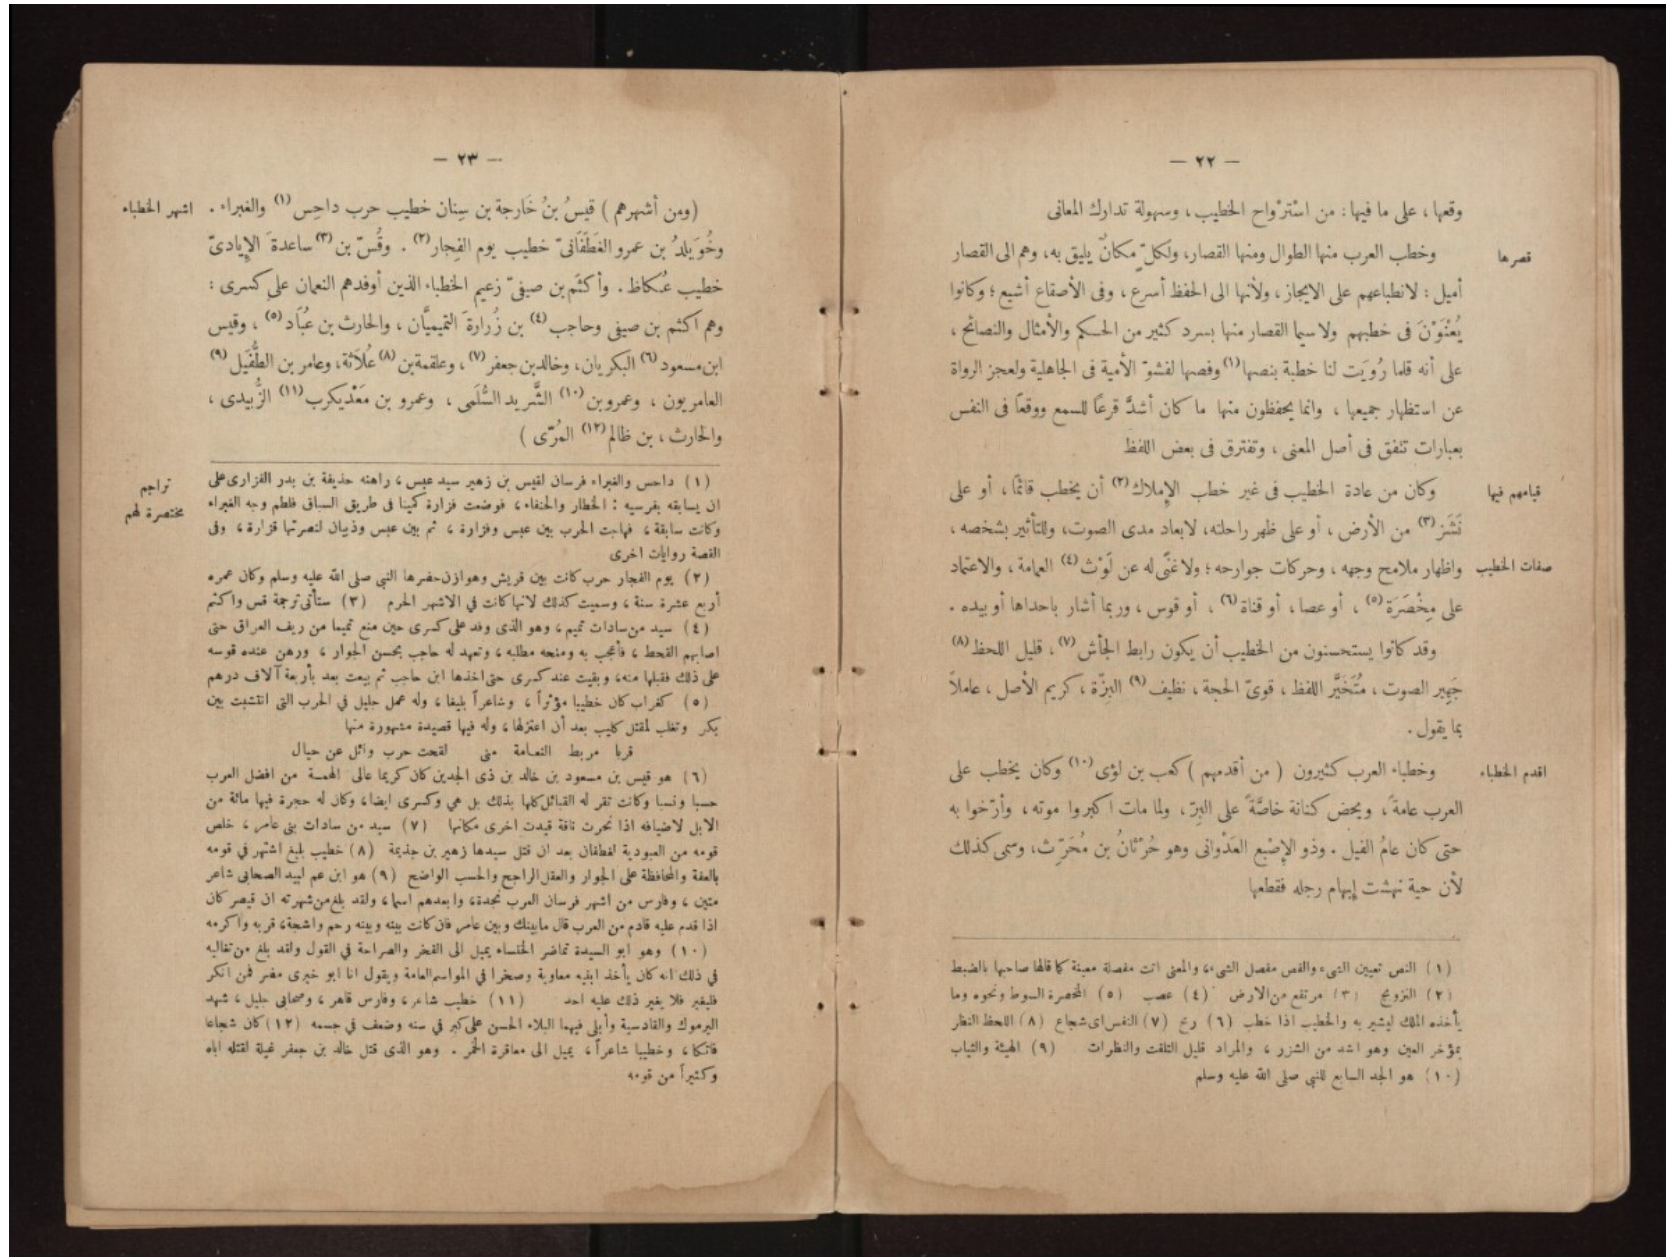 — ٢٢ —
وقعها ، على ما فيها : من اسْترْواح الخطيب ، وسهولة تدارك المعانى
قصرها
وخطب العرب منها الطوال ومنها القصار، ولكلٍّ مكانٌ يليق به، وهم الى القصار
أميل : لانطباعهم على الايجاز ، ولأنها الى الحفظ أسرع ، وفى الأصقاع أشيع ؛ وكانوا
يُعْنَوْنَ فى خطبهم ولاسيما القصار منها بسرد كثير من الحكم والأمثال والنصائح ،
على أنه قلما رُوِيَت لنا خطبة بنصها (١) وفصها لفشوّ الأمية فى الجاهلية ولعجز الرواة
عن استظهار جميعها ، وانما يحفظون منها ما كان أشدَّ قرعًا للسمع ووقعاً فى النفس
بعبارات تتفق فى أصل المعنى ، وتفترق فى بعض اللفظ
قيامهم فيها
وكان من عادة الخطيب فى غير خطب الإملاك (٢) أن يخطب قائمًا ، أو على
نَشَز (٣) من الأرض ، أو على ظهر راحلته، لابعاد مدى الصوت، وللتأثير بشخصه ،
صفات الخطيب
واظهار ملامح وجهه ، وحركات جوارحه ؛ ولا غنًى له عن لَوْث (٤) العمامة ، والاعتماد
على مِخْصَرَة (٥) ، أو عصا ، أو قناة (٦) ، أو قوس ، وربما أشار باحداها أو بيده .
وقد كانوا يستحسنون من الخطيب أن يكون رابط الجأش (٧) ، قليل اللحظ (٨)
جَهِير الصوت ، مُتَخَيَّر اللفظ ، قوىّ الحجة ، نظيف (٩) البِزَّة ، كريم الأصل ، عاملاً
بما يقول .
اقدم الخطباء
وخطباء العرب كثيرون ( من أقدمهم ) كعب بن لؤى (١٠) وكان يخطب على
العرب عامةً ، ويحض كنانة خاصَّةً على البِرّ ، ولما مات اكبروا موته ، وأرّخوا به
حتى كان عامُ الفيل . وذو الإصْبع العَدْوانى وهو حُرْثانُ بن مُحَرِّث، وسمى كذلك
لأن حية نهشت إبهام رجله فقطعها
(١) النص تعيين الشىء والفص مفصل الشىء، والمعنى اتت مفصلة معينة كما قالها صاحبها بالضبط
(٢) التزويج (٣) مرتفع من الارض (٤) عصب (٥) المخصرة السوط ونحوه وما
يأخذه الملك ليشير به والخطيب اذا خطب (٦) رمح (٧) النفس اى شجاع (٨) اللحظ النظر
بمؤخر العين وهو اشد من الشزر ، والمراد قليل التلفت والنظرات (٩) الهيئة والثياب
(١٠) هو الجد السابع للنبى صلى الله عليه وسلم
— ٢٣ —
اشهر الخطباء
(ومن أشهرهم ) قيسُ بنُ خَارجة بن سِنان خطيب حرب داحِس (١) والغبراء .
وخُوَيلدُ بن عمرو الغَطَفَانىّ خطيب يوم الفِجار (٢) . وقُسّ بن (٣) ساعدةَ الإياديّ
خطيب عُكاظ . وأكثَم بن صيفىّ زعيم الخطباء الذين أوفدهم النعمان على كسرى :
وهم اكثم بن صيفى وحاجب (٤) بن زُرارةَ التميميَّان ، والحارث بن عُبَاد (٥) ، وقيس
ابن مسعود (٦) البكريان، وخالد بن جعفر (٧) ، وعلقمة بن (٨) عُلاَثة، وعامر بن الطُّفَيل (٩)
العامريون ، وعمرو بن (١٠) الشَّريد السُّلَمى ، وعمرو بن مَعْديكرب (١١) الزُّبيدى ،
والحارث ، بن ظالم (١٢) المُرّى )
تراجم
مختصرة لهم
(١) داحس والغبراء فرسان لقيس بن زهير سيد عبس ، راهنه حذيفة بن بدر الفزارى على
ان يسابقه بفرسيه : الخطار والحنفاء ، فوضعت فزارة كمينا فى طريق السباق فلطم وجه الغبراء
وكانت سابقة ، فهاجت الحرب بين عبس وفزارة ، ثم بين عبس وذبيان لنصرتها فزارة ، وفى
القصة روايات اخرى
(٢) يوم الفجار حرب كانت بين قريش وهوازن حضرها النبى صلى الله عليه وسلم وكان عمره
أربع عشرة سنة ، وسميت كذلك لانها كانت في الاشهر الحرم (٣) ستأتى ترجمة قس واكثم
(٤) سيد من سادات تميم ، وهو الذى وفد على كسرى حين منع تميما من ريف العراق حتى
اصابهم القحط ، فأعجب به ومنحه مطلبه ، وتعهد له حاجب بحسن الجوار ، ورهن عنده قوسه
على ذلك فقبلها منه، وبقيت عند كسرى حتى اخذها ابن حاجب ثم بيعت بعد بأربعة آلاف درهم
(٥) كغراب كان خطيبا مؤثراً ، وشاعراً بليغا ، وله عمل جليل في الحرب التى انتشبت بين
بكر وتغلب لمقتل كليب بعد أن اعتزلها ، وله فيها قصيدة مشهورة منها
قربا مربط النعامة منى لقحت حرب وائل عن حيال
(٦) هو قيس بن مسعود بن خالد بن ذى الجدين كان كريما عالى الهمة من افضل العرب
حسبا ونسبا وكانت تقر له القبائل كلها بذلك بل هي وكسرى ايضا، وكان له حجرة فيها مائة من
الابل لاضيافه اذا نحرت ناقة قيدت اخرى مكانها (٧) سيد من سادات بنى عامر ، خلص
قومه من العبودية لغطفان بعد ان قتل سيدها زهير بن جذيمة (٨) خطيب بليغ اشتهر في قومه
بالعفة والمحافظة على الجوار والعقل الراجح والحسب الواضح (٩) هو ابن عم لبيد الصحابى شاعر
متين ، وفارس من اشهر فرسان العرب نجدة، وابعدهم اسما، ولقد بلغ من شهرته ان قيصر كان
اذا قدم عليه قادم من العرب قال مابينك وبين عامر فان كانت بينه وبينه رحم واشجة، قربه واكرمه
(١٠) وهو ابو السيدة تماضر الخنساء يميل الى الفخر والصراحة في القول ولقد بلغ من تغاليه
في ذلك انه كان يأخذ ابنيه معاوية وصخرا في المواسم العامة ويقول انا ابو خيرى مضر فمن انكر
فليغير فلا يغير ذلك عليه احد (١١) خطيب شاعر ، وفارس قاهر ، وصحابى جليل ، شهد
اليرموك والقادسية وأبلى فيهما البلاء الحسن على كبر في سنه وضعف في جسمه (١٢) كان شجاعا
فاتكا ، وخطيبا شاعراً ، يميل الى معاقرة الخمر . وهو الذى قتل خالد بن جعفر غيلة لقتله اباه
وكثيراً من قومه